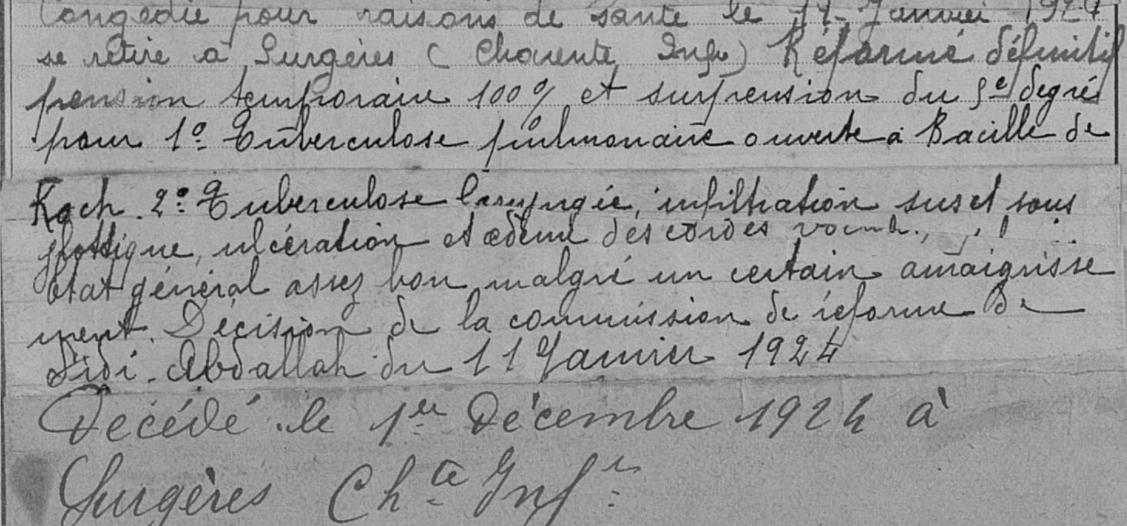 Congédié pour raisons de santé le 11 Janvier 1924
se retire à Surgères (Charente Infre) Réformé définitif
pension temporaire 100% et surpension du 9e degré
pour 1º Tuberculose pulmonaire ouverte à Bacille de
Koch. 2º Tuberculose laryngée, infiltration sus et sous
glottique, ulcération et œdème des cordes
Etat général assez bon malgré un certain amaigrisse
ment. Décision de la commission de réforme de
Sidi-Abdallah du 11 Janvier 1924
Décédé le 1er Décembre 1924 à
Surgères Chte Infre